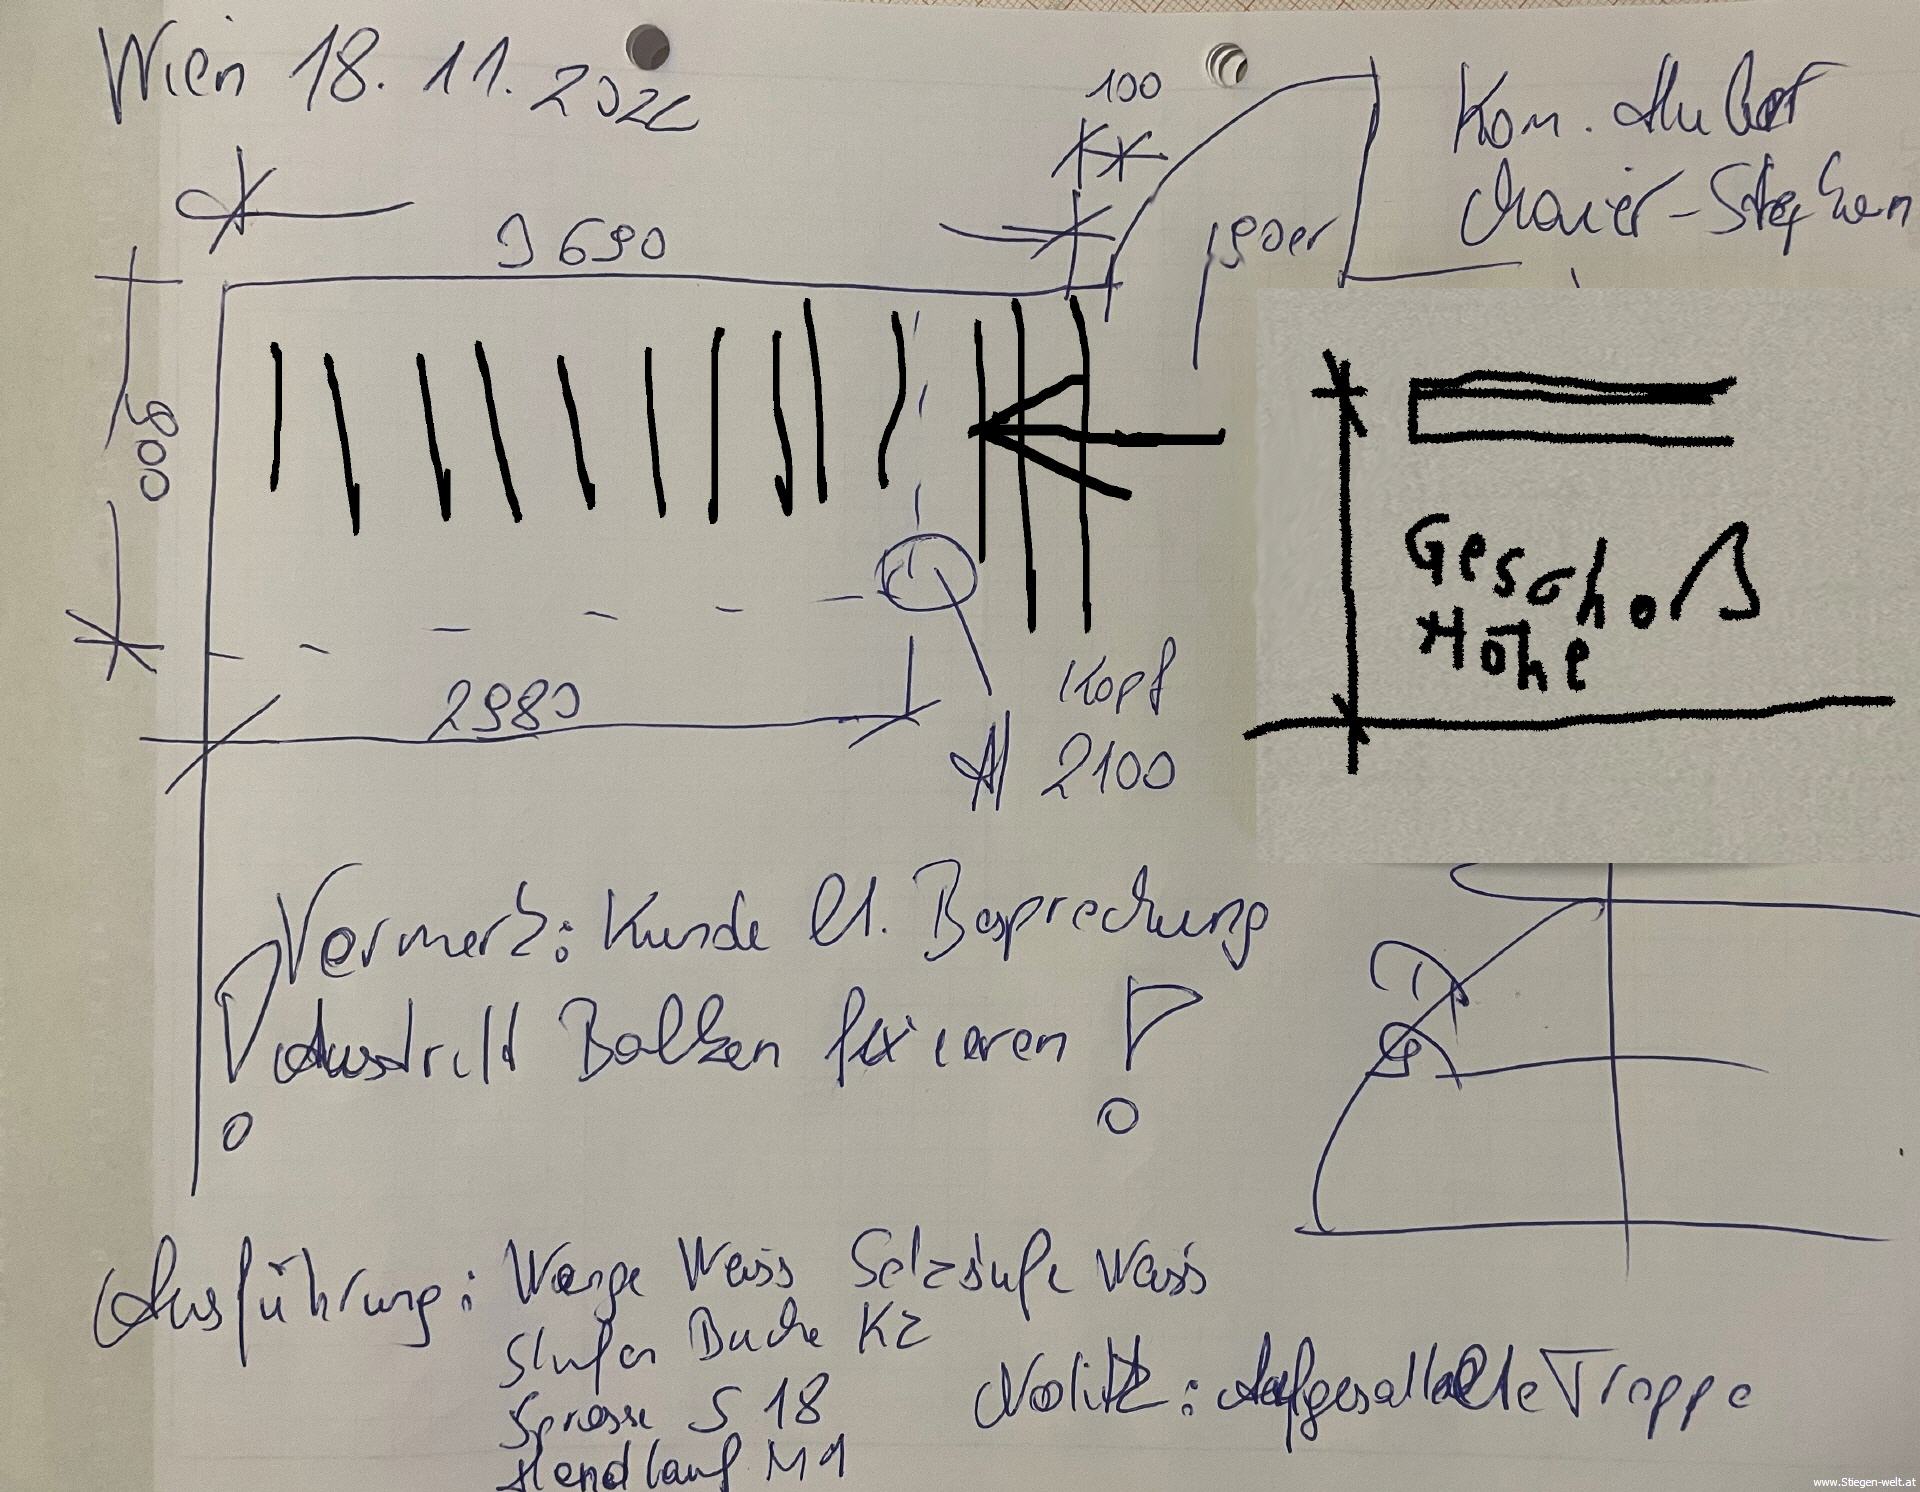 Wien 18. 11. 202
100
Kom. Hubert
Maier-Stephan
3690
90er
900
Geschoß
Höhe
2980
Kopf
2100
Vermerk: Kunde lt. Besprechung
Austritt Balken fixieren
Ausführung: Wange Weiss Setzstufe Weiss
Stufen Buche KZ
Sprosse S 18
Handlauf M1
Notitz: Aufgesattelte Treppe
www.Stiegen-welt.at